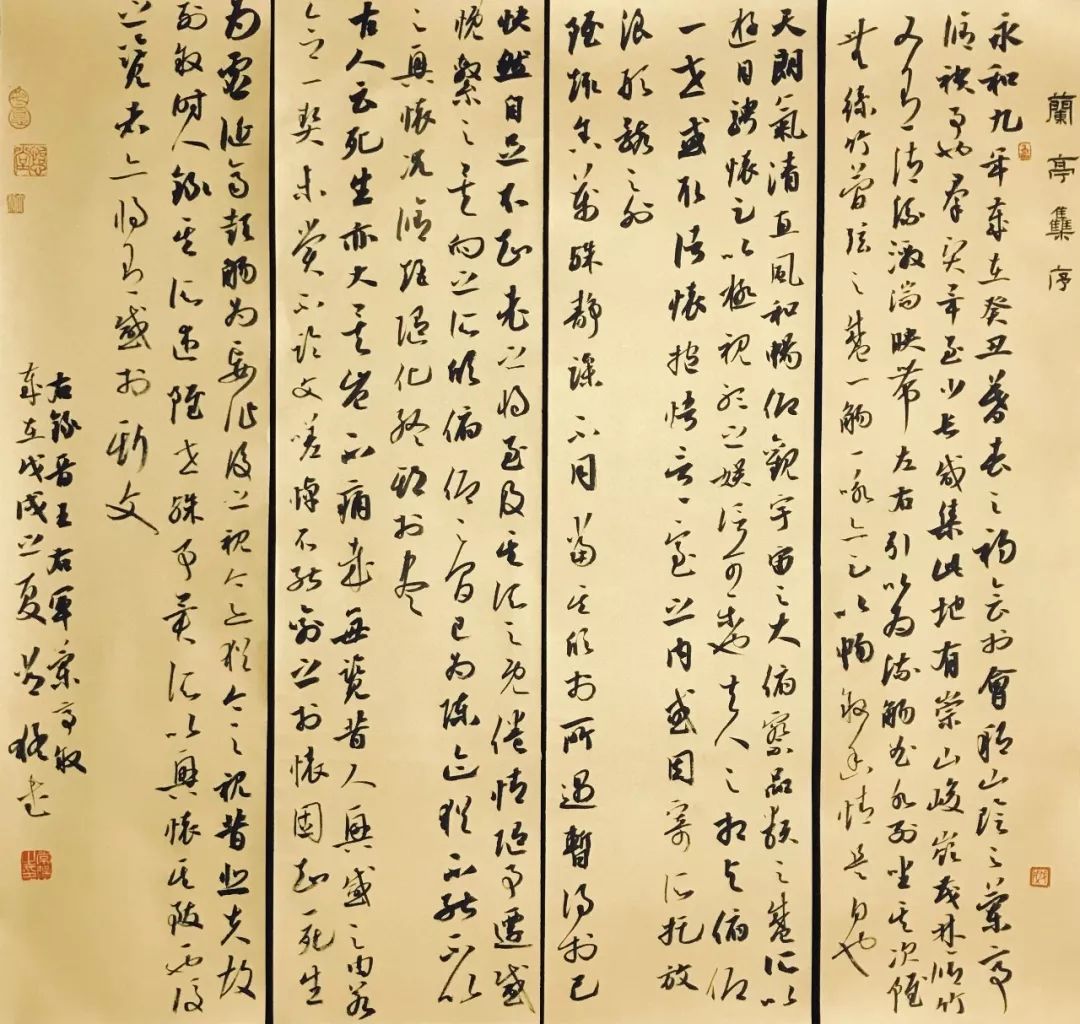 蘭亭集序
永和九年歲在癸丑暮春之初會於會稽山陰之蘭亭
脩禊事也羣賢畢至少長咸集此地有崇山峻嶺茂林脩竹
又有清流激湍映帶左右引以為流觴曲水列坐其次雖
無絲竹管弦之盛一觴一詠亦足以暢敘幽情是日也
天朗氣清惠風和暢仰觀宇宙之大俯察品類之盛所以
遊目騁懷足以極視聽之娛信可樂也夫人之相與俯仰
一世或取諸懷抱悟言一室之內或因寄所託放
浪形骸之外
雖趣舍萬殊靜躁不同當其欣於所遇暫得於己
快然自足不知老之將至及其所之既倦情隨事遷感
慨繫之矣向之所欣俯仰之間已為陳迹猶不能不以
之興懷況脩短隨化終期於盡
古人云死生亦大矣豈不痛哉每覽昔人興感之由若
合一契未嘗不臨文嗟悼不能喻之於懷固知一死生
為虛誕齊彭殤為妄作後之視今亦猶今之視昔悲夫故
列敘時人錄其所述雖世殊事異所以興懷其致一也後
之覽者亦將有感於斯文
右錄晉王右軍蘭亭敘
歲在戊戌之夏書